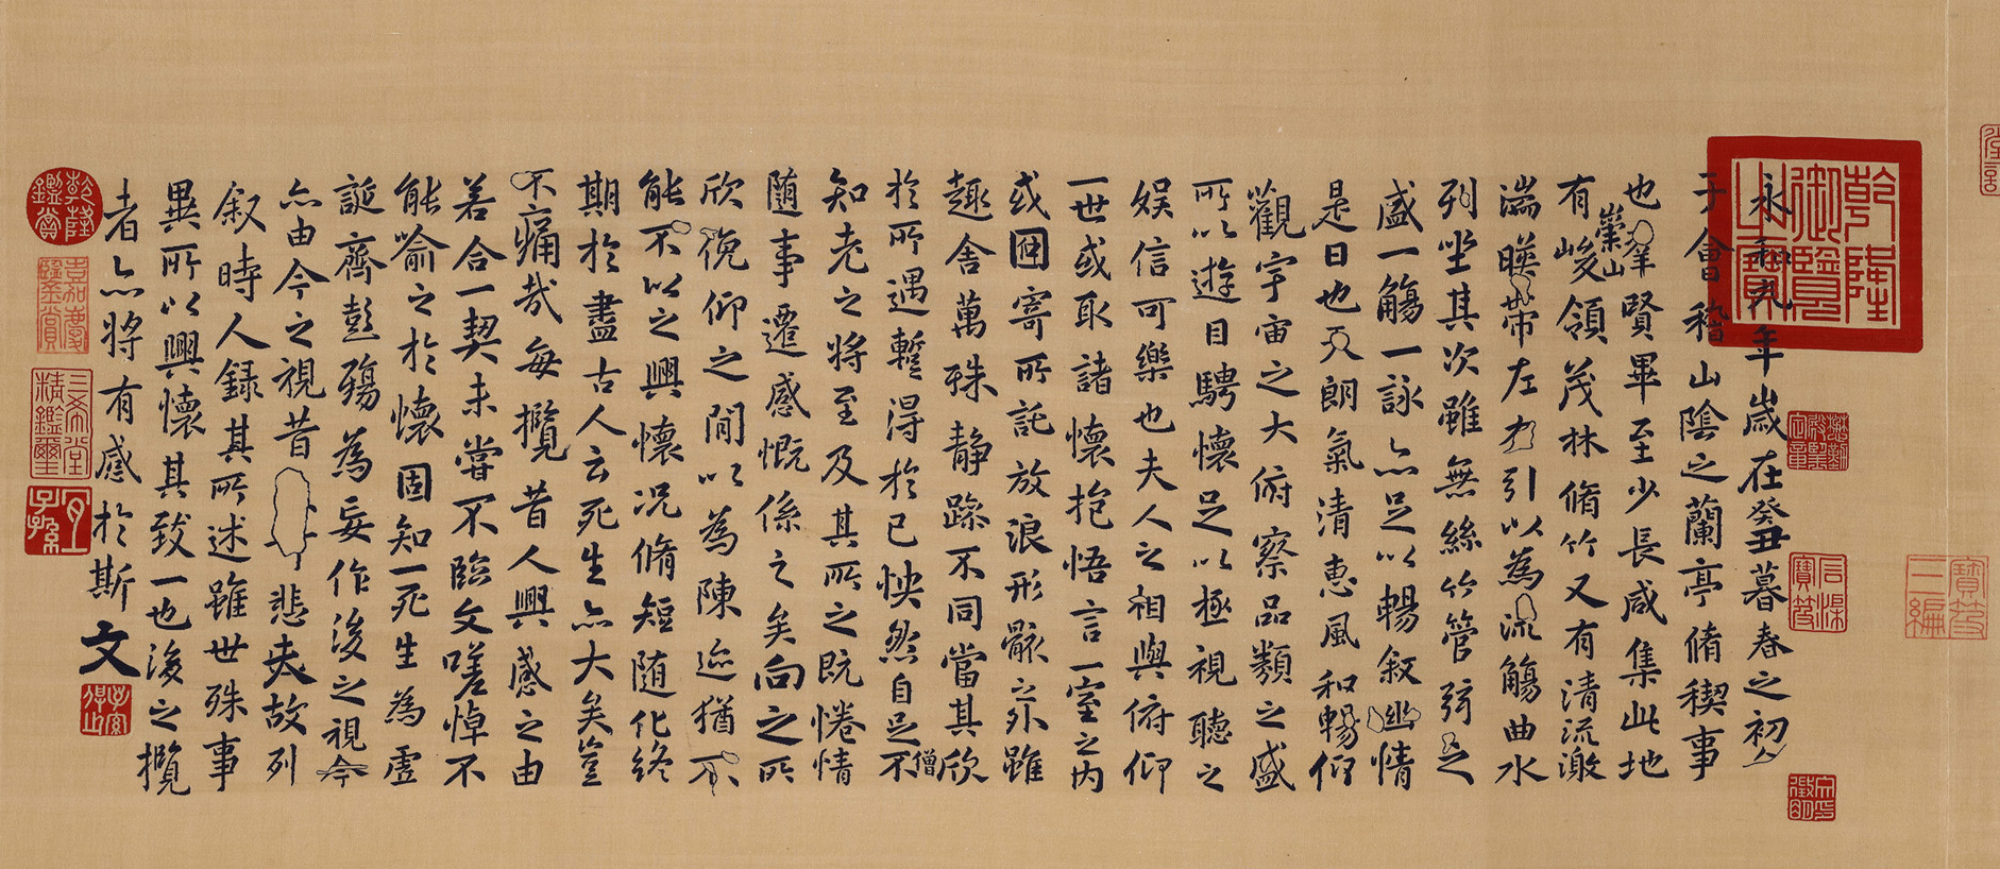 寶笈三編
乾隆御覽之寶
懋勤殿鑒定章
石渠寶笈
永和九年歲在癸丑暮春之初
于會稽山陰之蘭亭脩稧事
也羣賢畢至少長咸集此地
有崇山峻領茂林脩竹又有清流激
湍暎帶左右引以為流觴曲水
列坐其次雖無絲竹管弦之
盛一觴一詠亦足以暢叙幽情
是日也天朗氣清惠風和暢仰
觀宇宙之大俯察品類之盛
所以遊目騁懷足以極視聽之
娛信可樂也夫人之相與俯仰
一世或取諸懷抱悟言一室之內
或因寄所託放浪形骸之外雖
趣舍萬殊静躁不同當其欣
僧
於所遇蹔得於己怏然自足不
知老之將至及其所之既惓情
隨事遷感慨係之矣向之所
欣俛仰之閒以為陳迹猶不
能不以之興懷況脩短隨化終
期於盡古人云死生亦大矣豈
不痛哉每攬昔人興感之由
若合一契未嘗不臨文嗟悼不
能喻之於懷固知一死生為虛
誕齊彭殤為妄作後之視今
亦由今之視昔悲夫故列
叙時人錄其所述雖世殊事
異所以興懷其致一也後之攬
者亦將有感於斯文
乾隆鑑賞
嘉慶鑒賞
三希堂精鑑璽
宜子孫